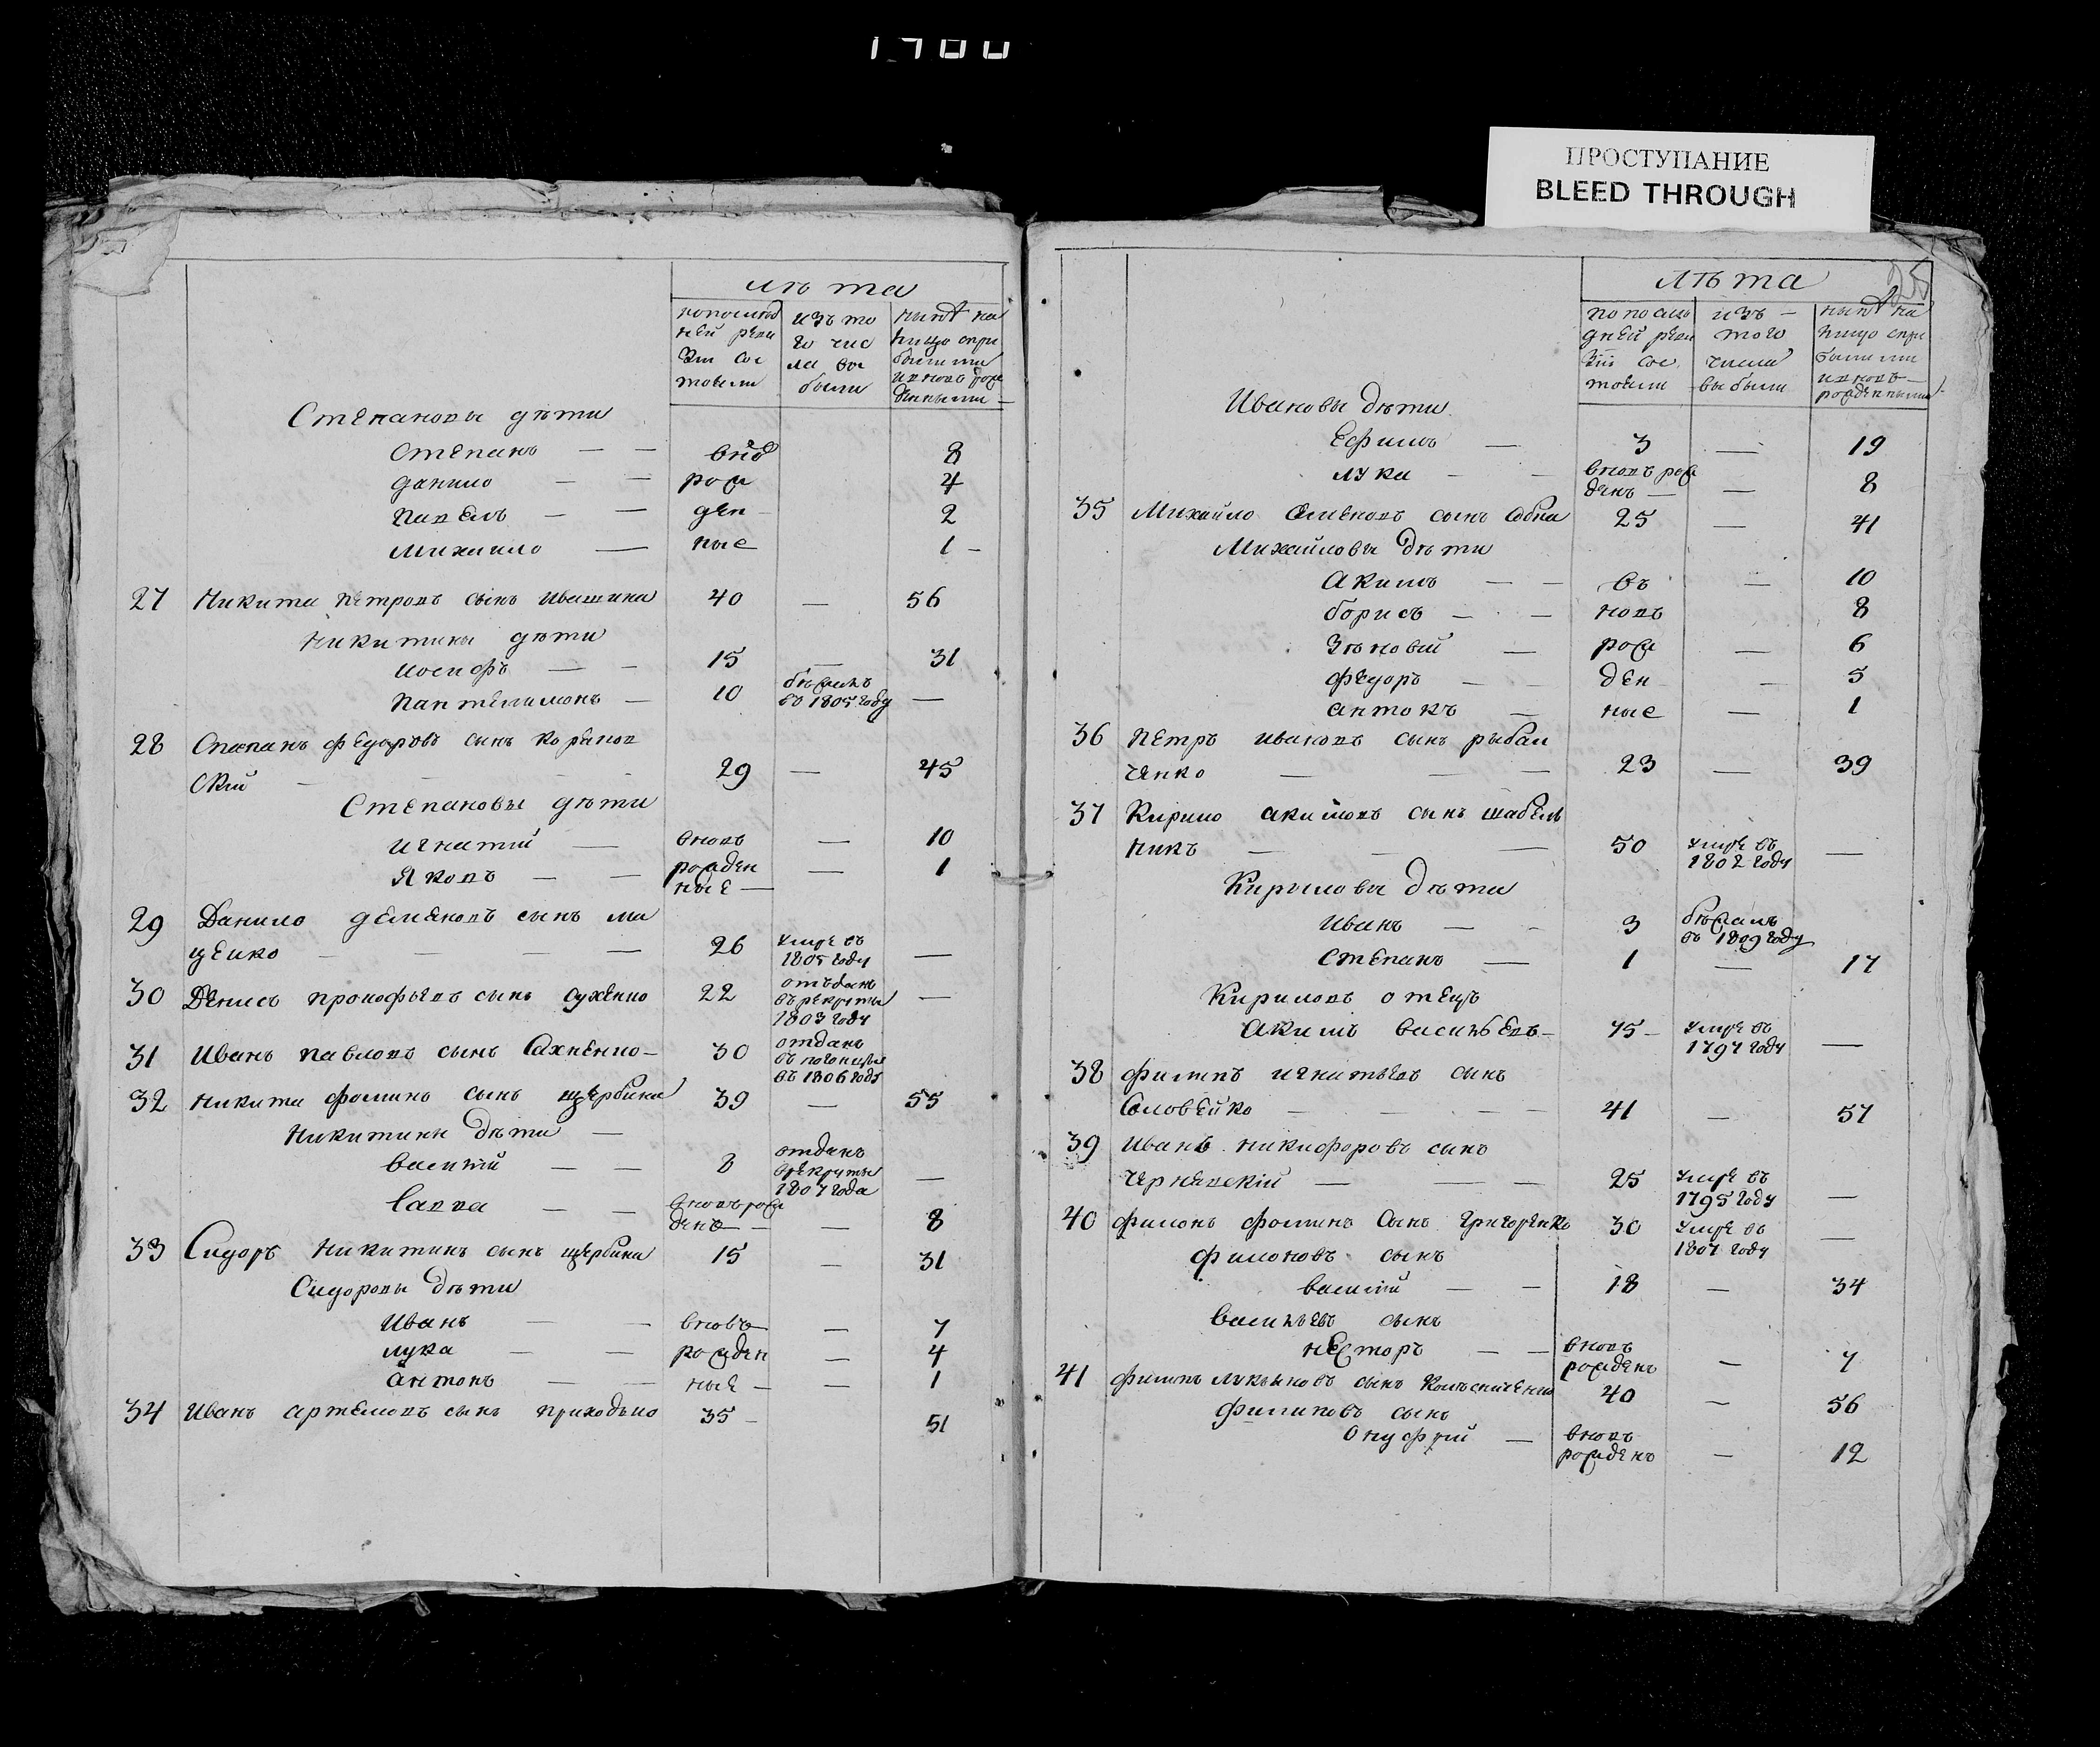 1700
ПРОСТУПАНИЕ
BLEED THROUGH
лѣта
по послѣд ней реви зіи сос тояли
изъ то го чис ла вы были
нынѣ на лицо съ при былыми и вновь рож денными
Степановы дѣти
Степанъ — — внов 8
данило — — рож 4
павелъ — — ден 2
михаило — ные 1 –
27 Никита петровъ сынъ ивашина 40 — 56
Никитины дѣти
иосифъ — — 15 — 31
пантелимонъ — 10 бѣжалъ въ 1805 году —
28 Степанъ федоровъ сынъ
скій — 29 — 45
Степановы дѣти
игнатій — вновь — 10
яковъ — — рожден ные — — 1
29 Данило демяновъ сынъ ма
ценко — — — 26 умре въ 1805 году —
30 Денисъ прокофьевъ сынъ сухенко 22 отъданъ въ рекруты 1803 году —
31 Иванъ павловъ сынъ Сахненко — 30 отданъ въ 1806 году
32 Никита фоминъ сынъ щербина 39 — 55
Никитины дѣти —
василій — — 8 отданъ врекруты 1807 года —
Савва — — вновь рож денъ — — 8
33 Сидоръ Никитинъ сынъ щербина 15 — 31
Сидоровы дѣти
Иванъ — — вновь — 7
лука — — рожден — 4
антонъ — — ные — — 1
34 Иванъ артемовъ сынъ приходько 35 — 51
25
лѣта
по послѣ дней реви зіи сос тояли
изъ — того числа выбыли
нынѣ на лицо съ при былыми и вновь — рожденными
Ивановы дѣти
Ефимъ — 3 — 19
лука — — вновь рож денъ — — 8
35 Михайло Семеновъ сынъ 25 — 41
Михайловы дѣти
акимъ — — въ — 10
борисъ — — новь 8
Зѣновій — рож — 6
федоръ — — ден — 5
антонъ — ные — 1
36 петръ ивановъ сынъ рыбал
ченко — — — 23 — 39
37 Кирило акимовъ сынъ шабель
никъ — — — 50 умре въ 1802 году —
Кириловы дѣти
Иванъ — — 3 бѣжалъ въ 1809 году
Степанъ — 1 — 17
Кириловъ отецъ
акимъ васильевъ — 75 — умре въ 1797 году —
38 филипъ игнатьевъ сынъ
Соловейко — — — — 41 — 57
39 Иванъ никифоровъ сынъ
Чернявскій — — — 25 умре въ 1795 году —
40 филонъ фоминъ Сынъ григоренко 30 умре въ 1807 году —
филоновъ сынъ
василій — — 18 — 34
васильевъ сынъ
несторъ — — вновь рожденъ — 7
41 филипъ лукьяновъ сынъ 40 — 56
филиповъ сынъ
онуфрій — вновь рожденъ — 12